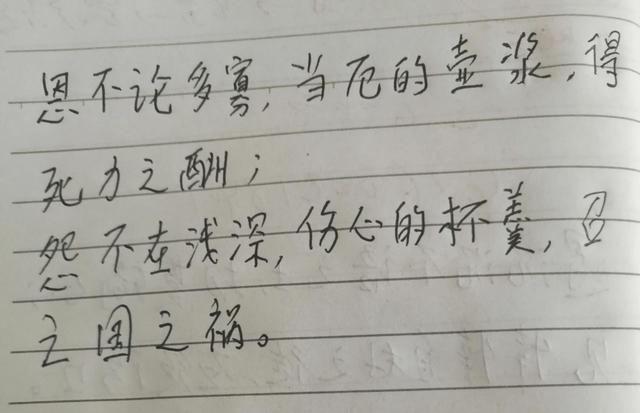 恩不论多寡，当厄的壶浆，得
死力之酬；
怨不在浅深，伤心的杯羹，召
亡国之祸。